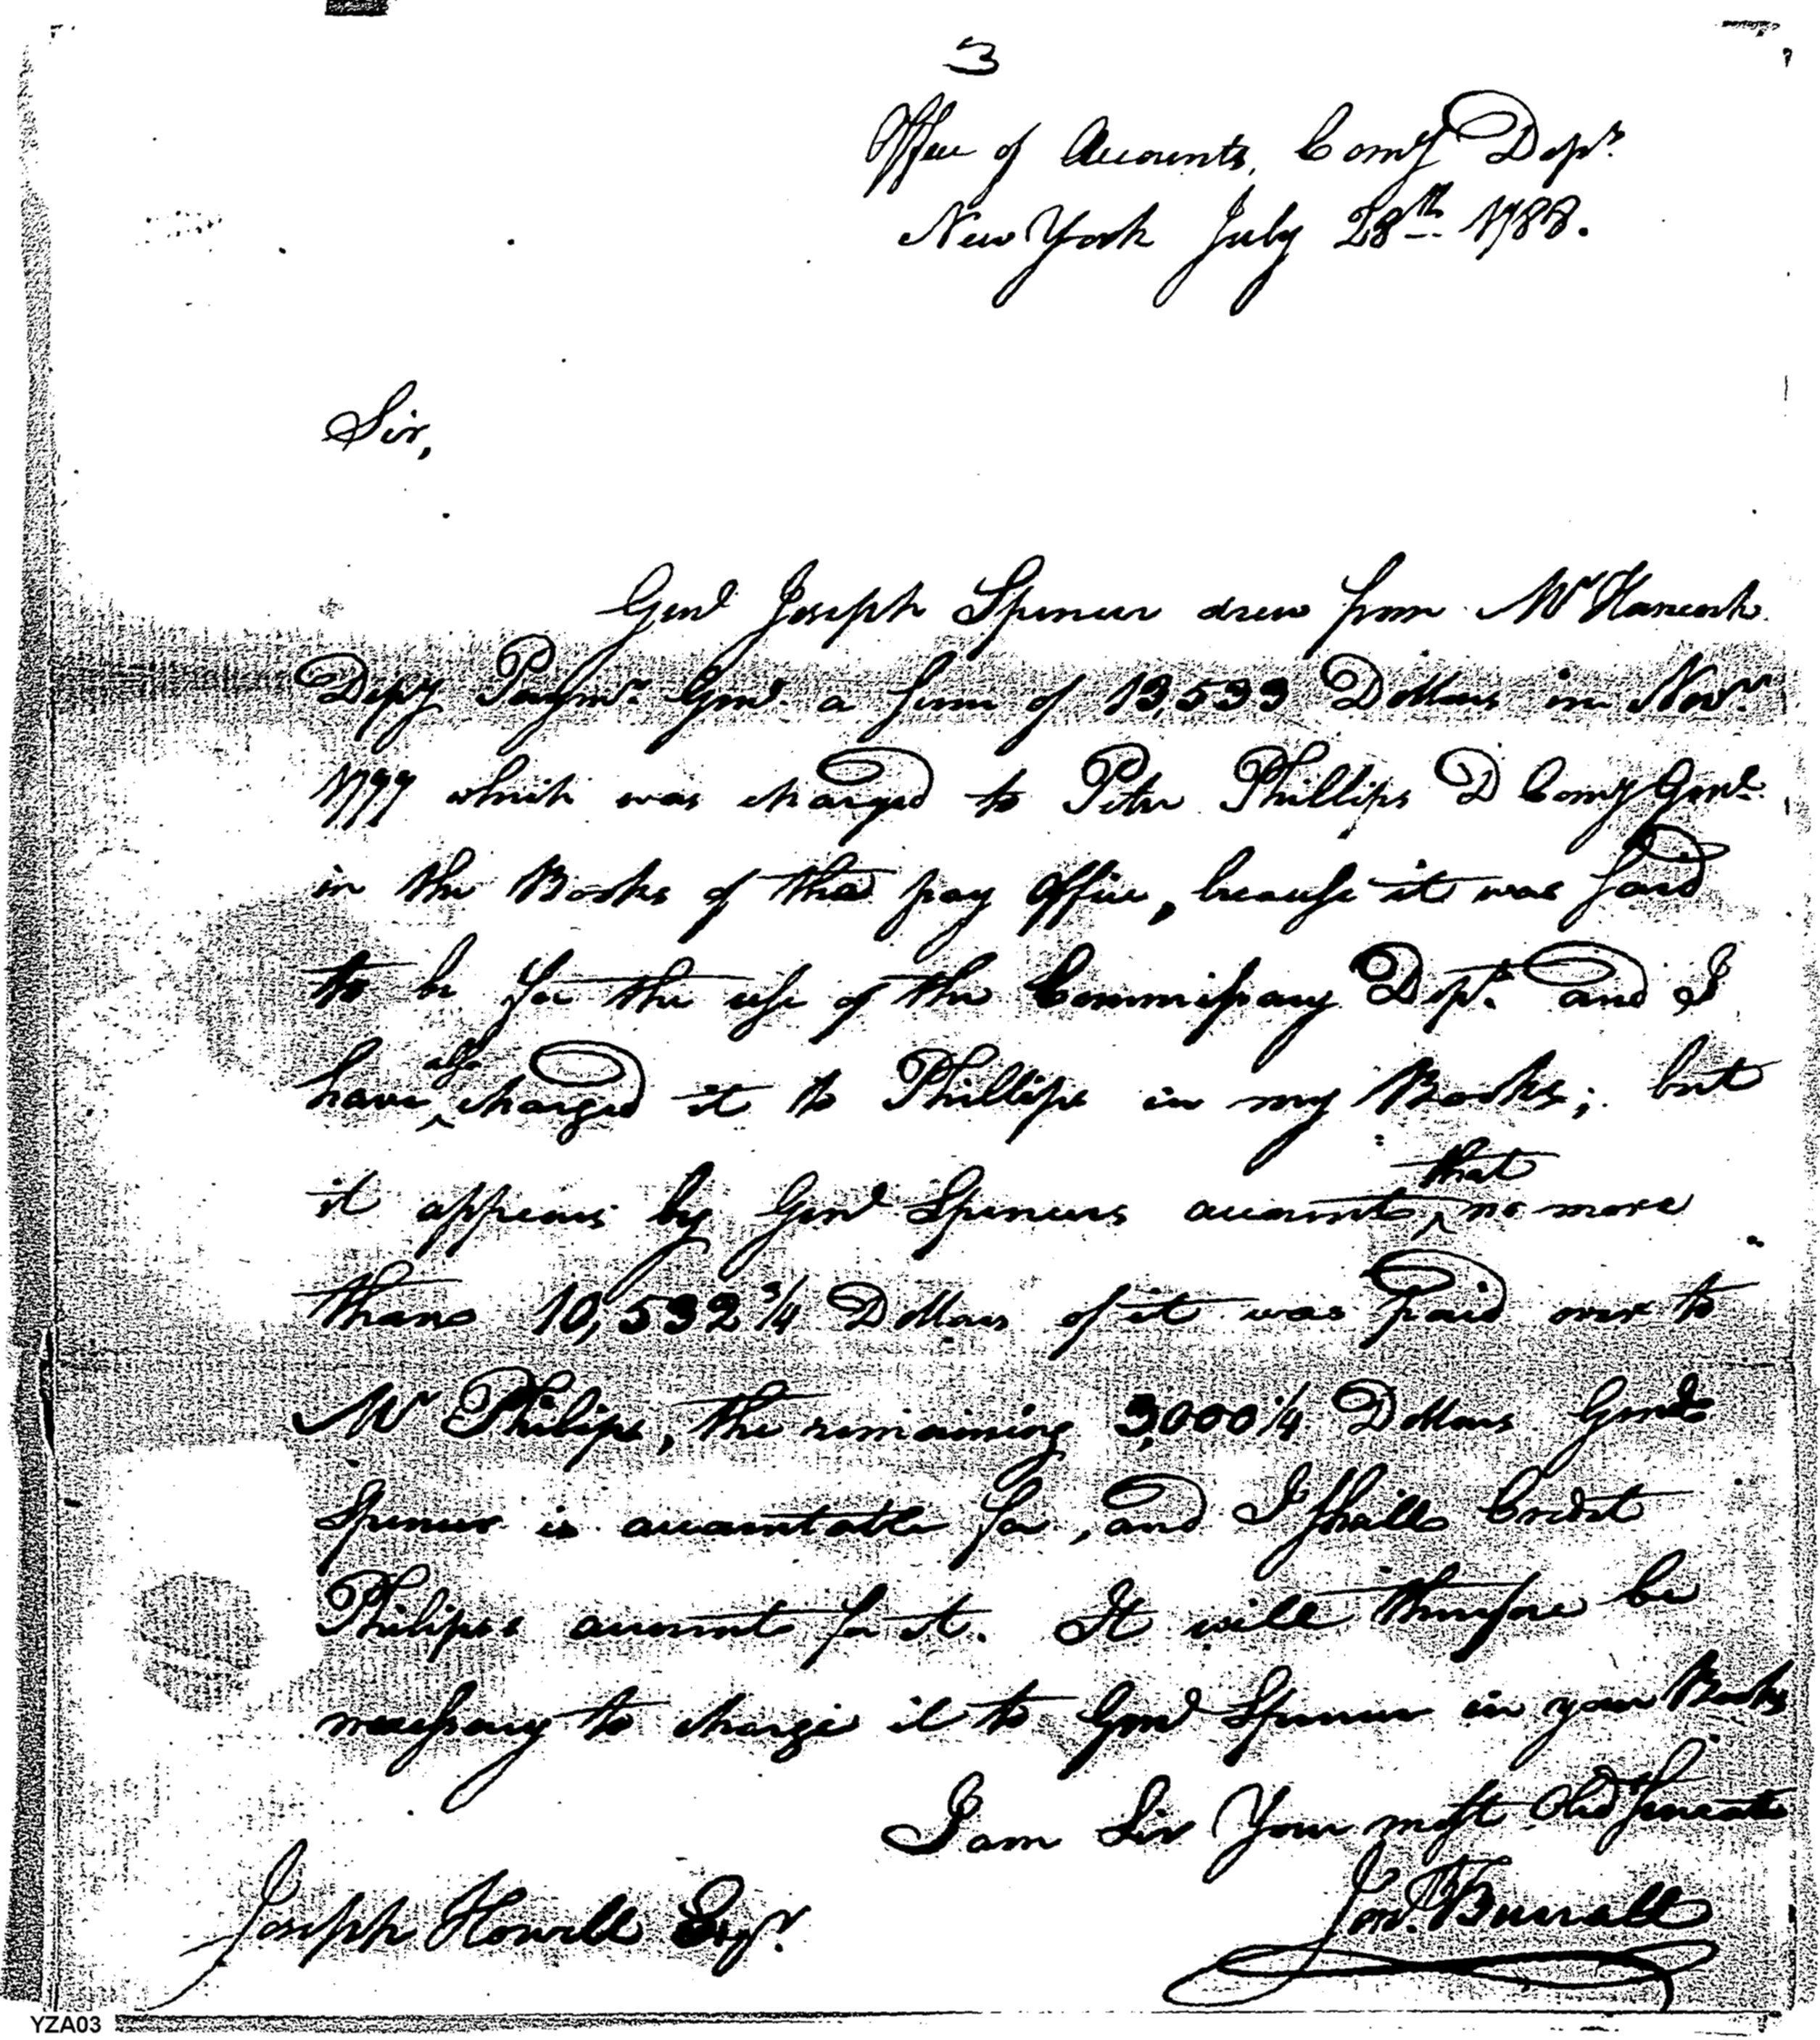 3
Office of Accounts, Comy Dept.
New York July 28th 1788.
Sir,
Genl Joseph Spencer drew from Mr Hancock
Depy Paymr. Genl. a sum of 13,533 Dollars in Novr.
1777 which was charged to Peter Phillips D Comy Genl.
in the Books of the pay Office, because it was said
to be for the use of the Commissary Dept. and I
also
have ‸ charged it to Phillips in my Books; but
that
it appears by Genl Spencers accounts ‸ no more
than 10,532 3/4 Dollars of it was paid over to
Mr Philips, the remaining 3,000 1/4 Dollars Genl
Spencer is accountable for, and I shall Credit
Philips's account for it. It will therefore be
necessary to charge it to Genl Spencer in your Books
I am Sir Your most Obed Servant
Jon. Burrall
Joseph Howell Esqr.
YZA03